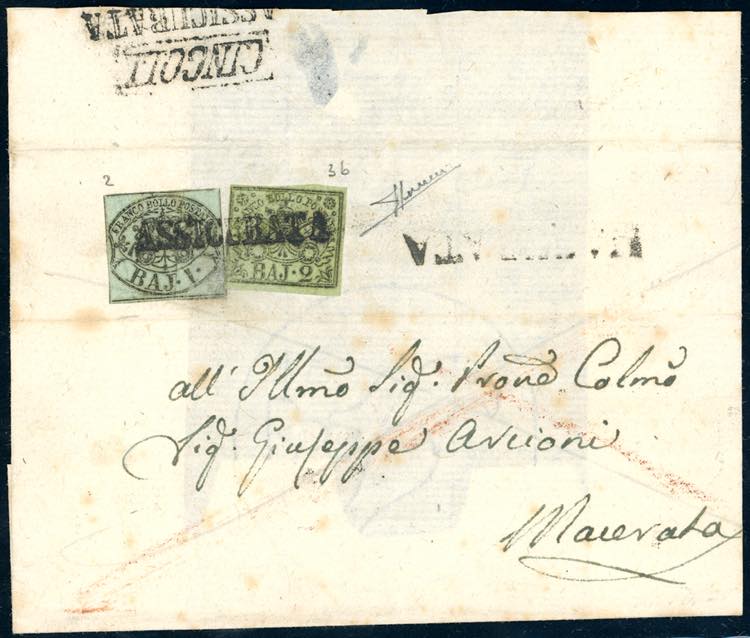 ASSICURATA
CINGOLI
2
36
FRANCO BOLLO POSTALE
BAJ. 1.
FRANCO BOLLO POSTALE
BAJ. 2
ASSICURATA
all' Illmõ Sig. Prone Colmõ
Sig. Giuseppe Arcioni
Macerata